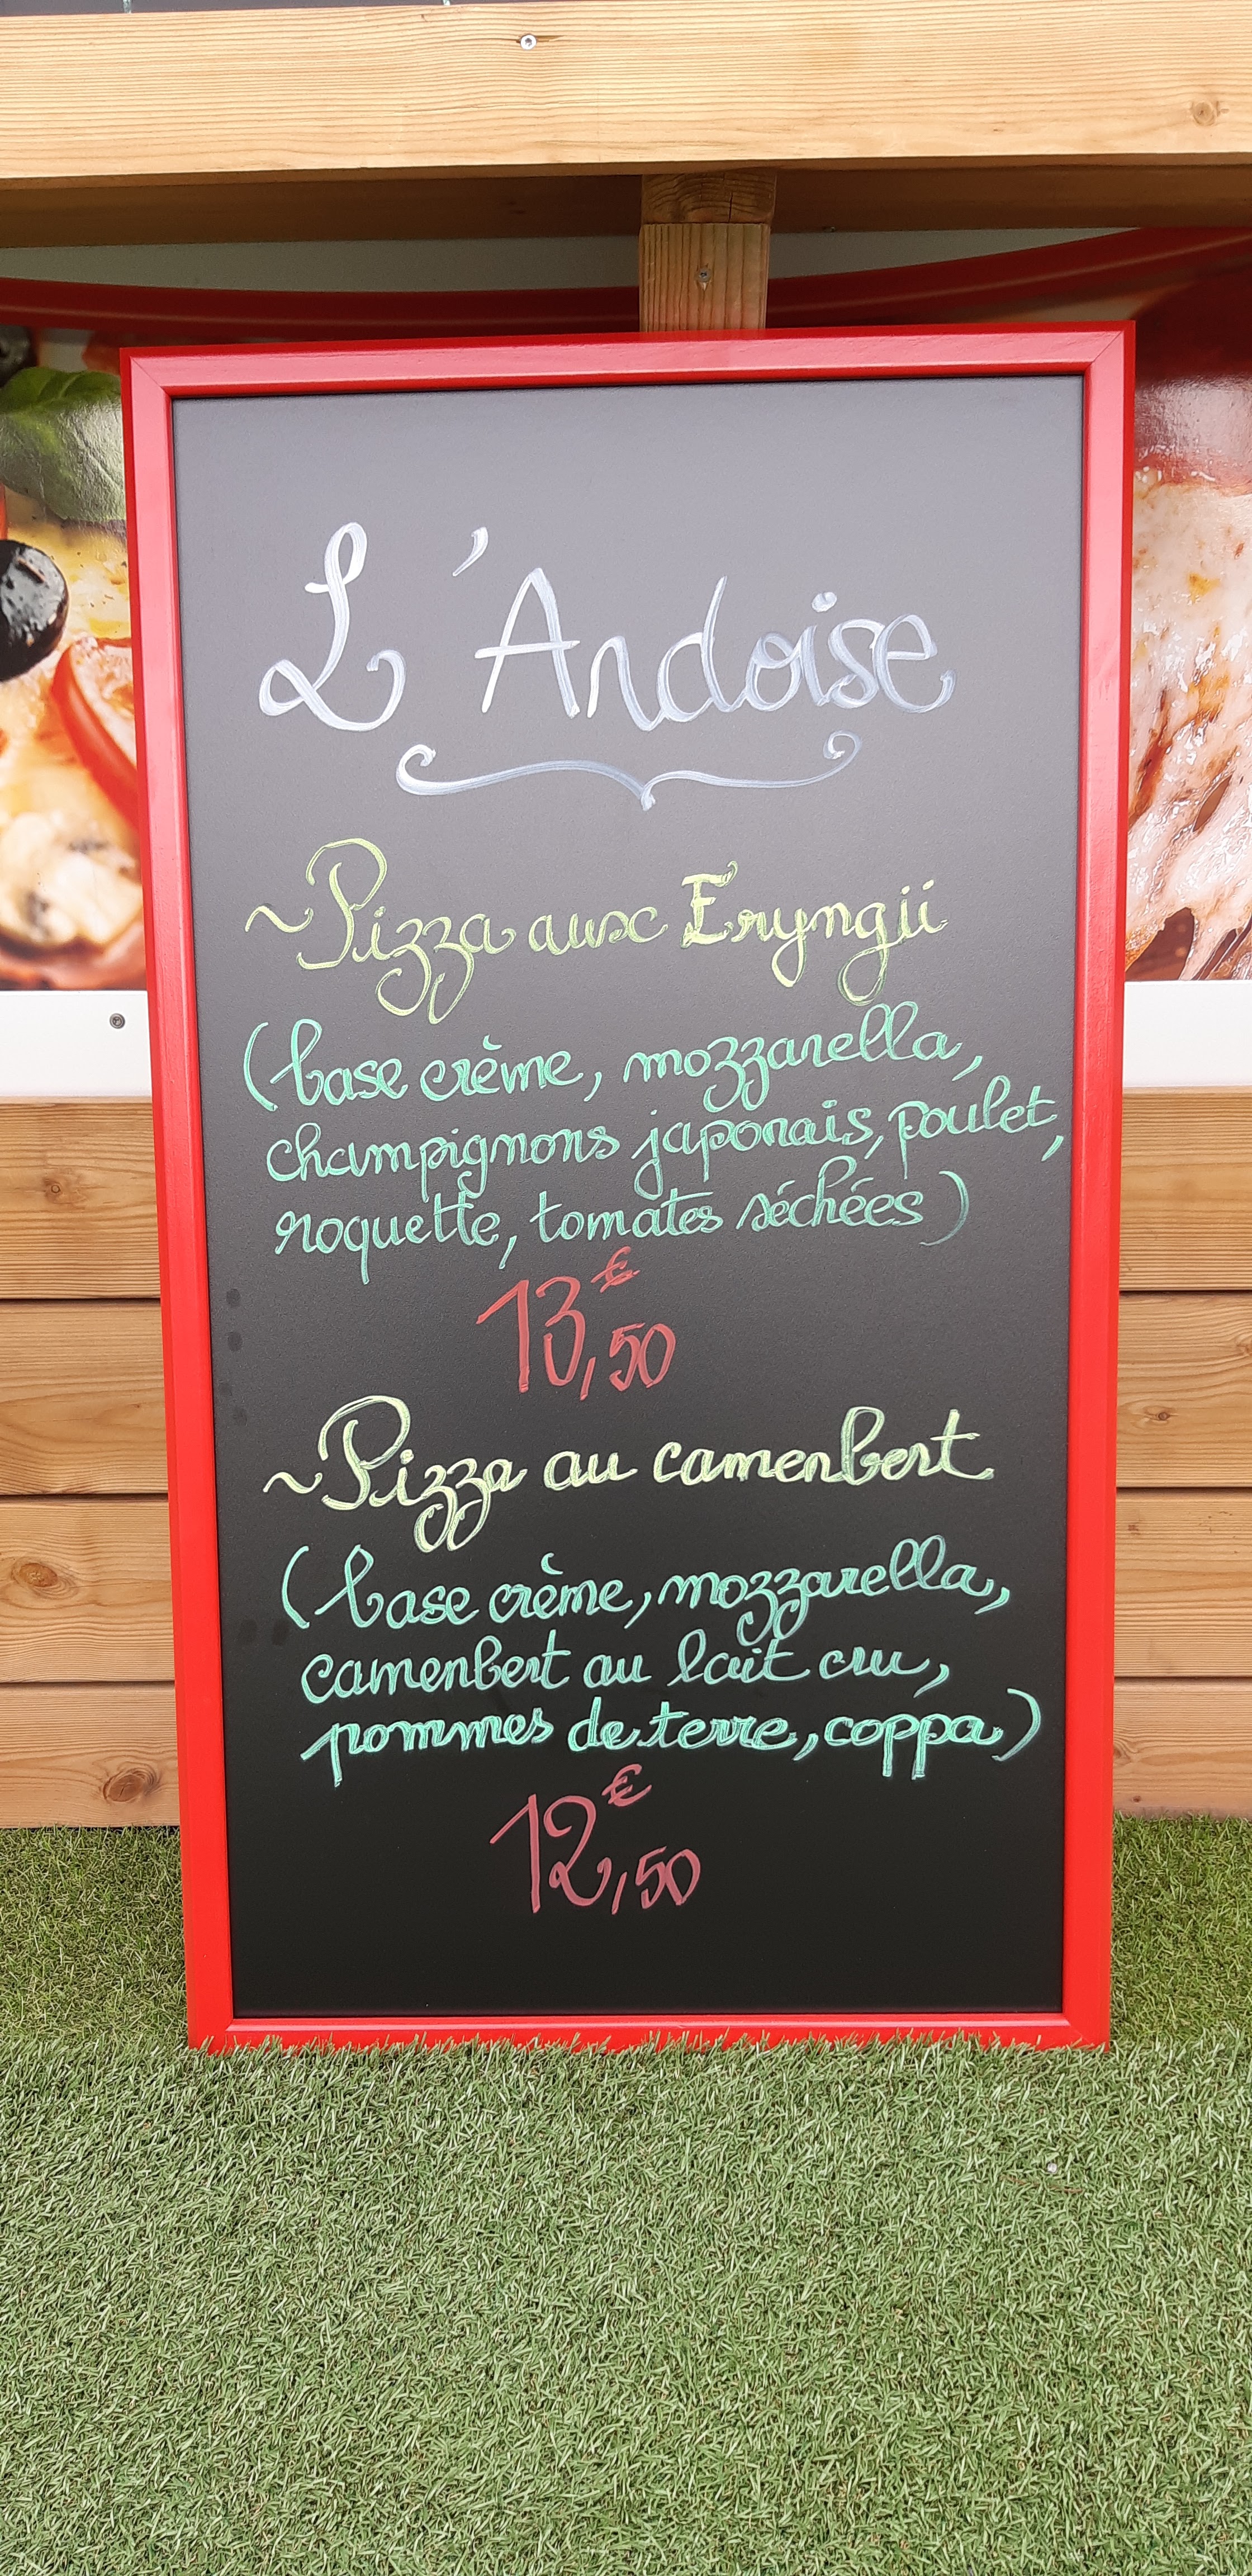 L'Andoise
~Pizza aux Eryngii
(base crème, mozzarella,
champignons japonais, poulet,
roquette, tomates séchées)
13€,50
~Pizza au camenbert
(base crème, mozzarella,
camenbert au lait cru,
pommes de terre, coppa)
12€,50